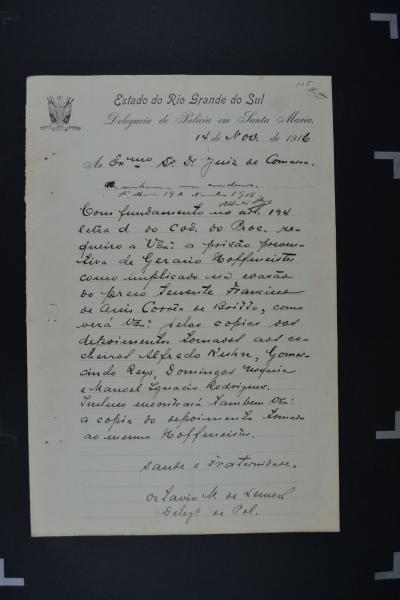 Estado do Rio Grande do Sul
Delegacia de Policia em Santa Maria,
14 de Nov. de 1916
Ao Exmo Sr. Dr. Juiz de Comarca.
Com fundamento no art. 194
letra d do Cod. do Proc. re-
queiro a V Exa. a prisão preven-
tiva de Geracio Hoffmeister
como implicado na evasão
do preso Tenente Francisco
de Assis Corrêa de Britto, como
verá V Exa. pelas copias dos
depoimentos tomados aos co-
cheiros Alfredo Kuhn, Gomer-
cindo Reys, Domingos
e Manoel Ignacio Rodrigues.
Incluso encontrará tambem V Exa.
a copia do depoimento tomado
ao mesmo Hoffmeister.
Saude e Fraternidade.
Octavio M. de Lemos
Delego. de Pol.